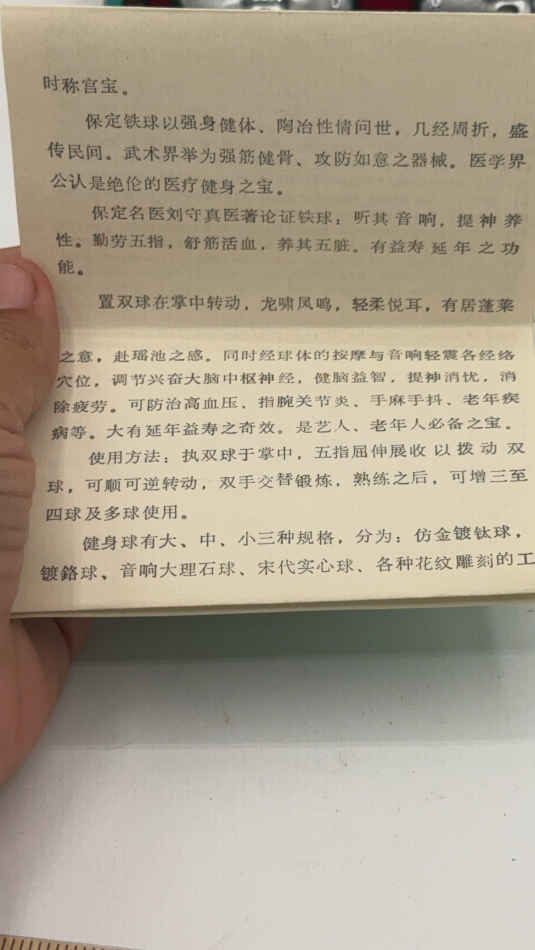 时称宫宝。
保定铁球以强身健体、陶冶性情问世，几经周折，盛
传民间。武术界举为强筋健骨、攻防如意之器械。医学界
公认是绝伦的医疗健身之宝。
保定名医刘守真医著论证铁球：听其音响，提神养
性。勤劳五指，舒筋活血，养其五脏。有益寿延年之功
能。
置双球在掌中转动，龙啸凤鸣，轻柔悦耳，有居蓬莱
之意，赴瑶池之感。同时经球体的按摩与音响轻震各经络
穴位，调节兴奋大脑中枢神经，健脑益智，提神消忧，消
除疲劳。可防治高血压、指腕关节炎、手麻手抖、老年疾
病等。大有延年益寿之奇效。是艺人、老年人必备之宝。
使用方法：执双球于掌中，五指屈伸展收以拨动双
球，可顺可逆转动，双手交替锻炼，熟练之后，可增三至
四球及多球使用。
健身球有大、中、小三种规格，分为：仿金镀钛球，
镀鉻球、音响大理石球、宋代实心球、各种花纹雕刻的工